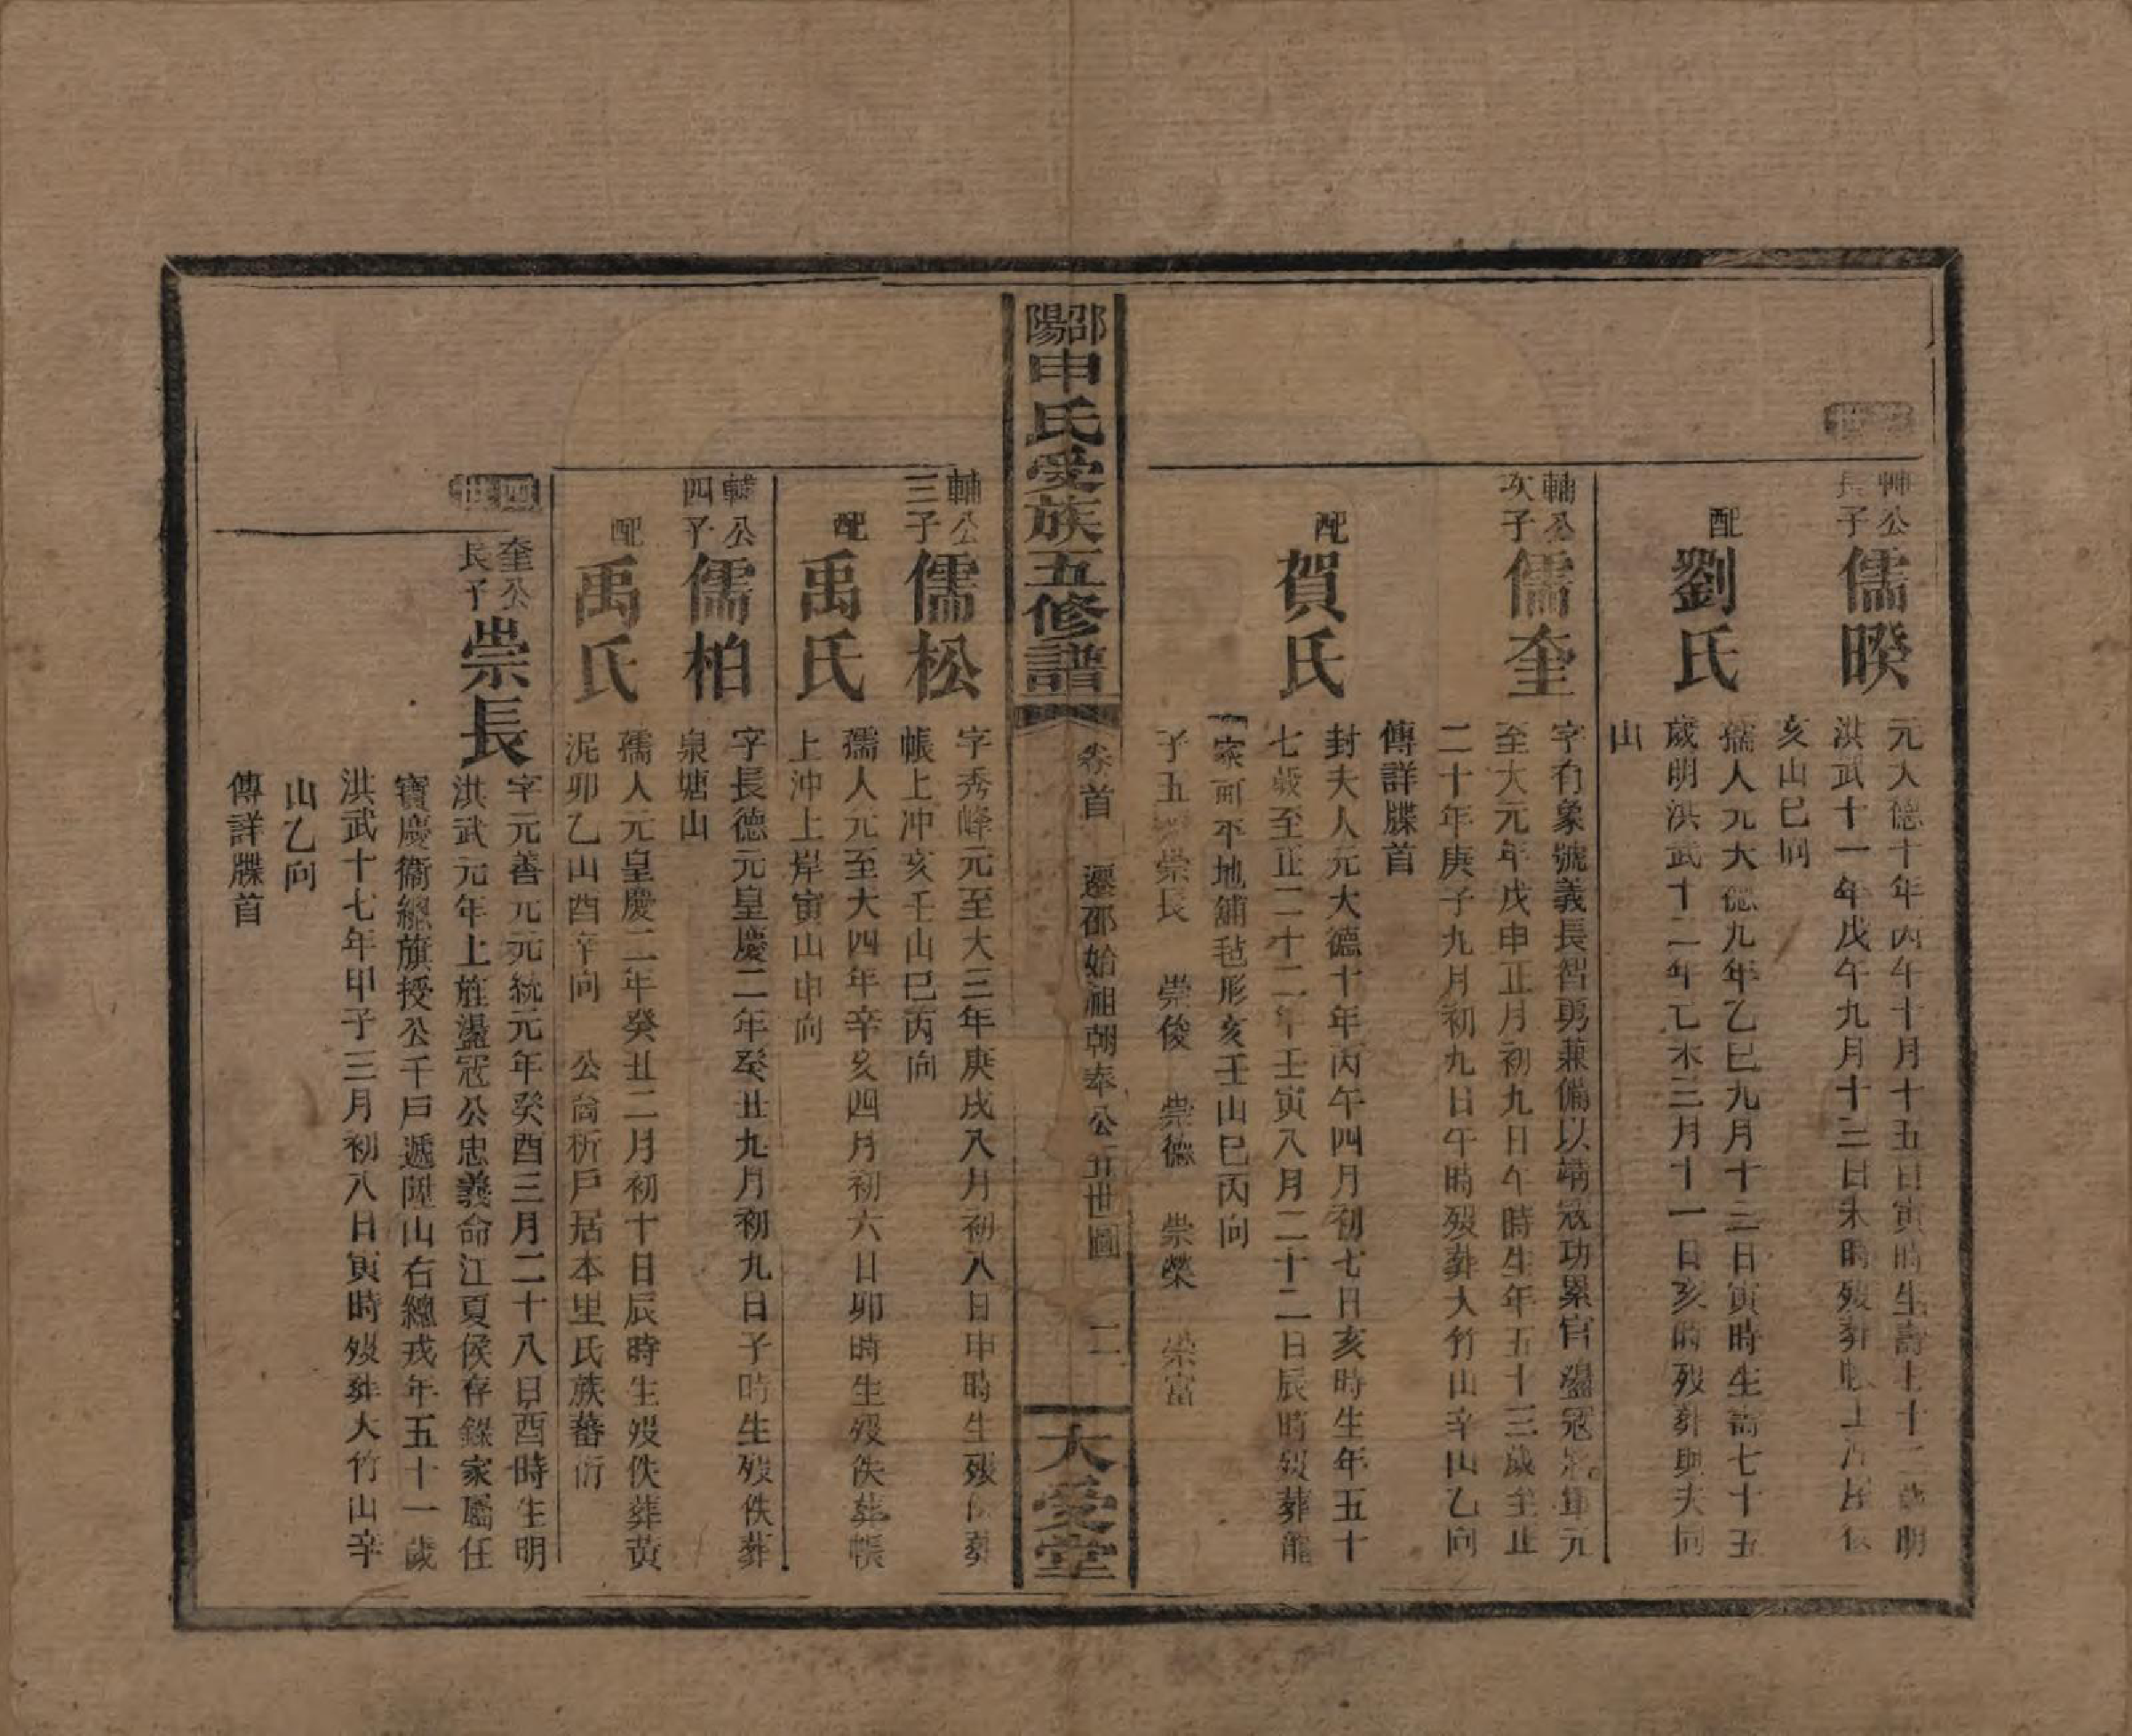 輔公
長子
儒暌
元大德十年丙午十月十五日寅時生壽七十三歲明
洪武十一年戊午九月十三日未時歿葬
亥山巳向
配
劉氏
孺人元大德九年乙巳九月十三日寅時生壽七十五
歲明洪武十二年己未三月十一日亥時歿葬與夫同
山
輔公
次子
儒奎
字有象號義長智勇兼備以靖寇功累官盪寇將軍元
至大元年戊申正月初九日午時生年五十三歲至正
二十年庚子九月初九日午時歿葬大竹山辛山乙向
傳詳牒首
配
賀氏
封夫人元大德十年丙午四月初七日亥時生年五十
七歲至正二十二年壬寅八月二十二日辰時歿葬龍
家町平地舖毡形亥壬山巳丙向
子五 崇長 崇俊 崇德 崇榮 崇富
邵陽申氏受族五修譜
卷首 遷邵始祖朝奉公五世圖 二
大受堂
輔公
三子
儒松
字秀峰元至大三年庚戌八月初八日申時生歿佚葬
帳上冲亥壬山巳丙向
配
禹氏
孺人元至大四年辛亥四月初六日卯時生歿佚葬帳
上沖上岸寅山申向
輔公
四子
儒柏
字長德元皇慶二年癸丑九月初九日子時生歿佚葬
泉塘山
配
禹氏
孺人元皇慶二年癸丑二月初十日辰時生歿佚葬黃
泥卯乙山酉辛向 公嵩析戶居本里氏族蕃衍
四世
奎公
長子
崇長
字元善元元統元年癸酉三月二十八日酉時生明
洪武元年上旌盪寇公忠義命江夏侯存錄家屬任
寶慶衞總旗授公千戶遞陞山右總戎年五十一歲
洪武十七年甲子三月初八日寅時歿葬大竹山辛
山乙向
傳詳牒首